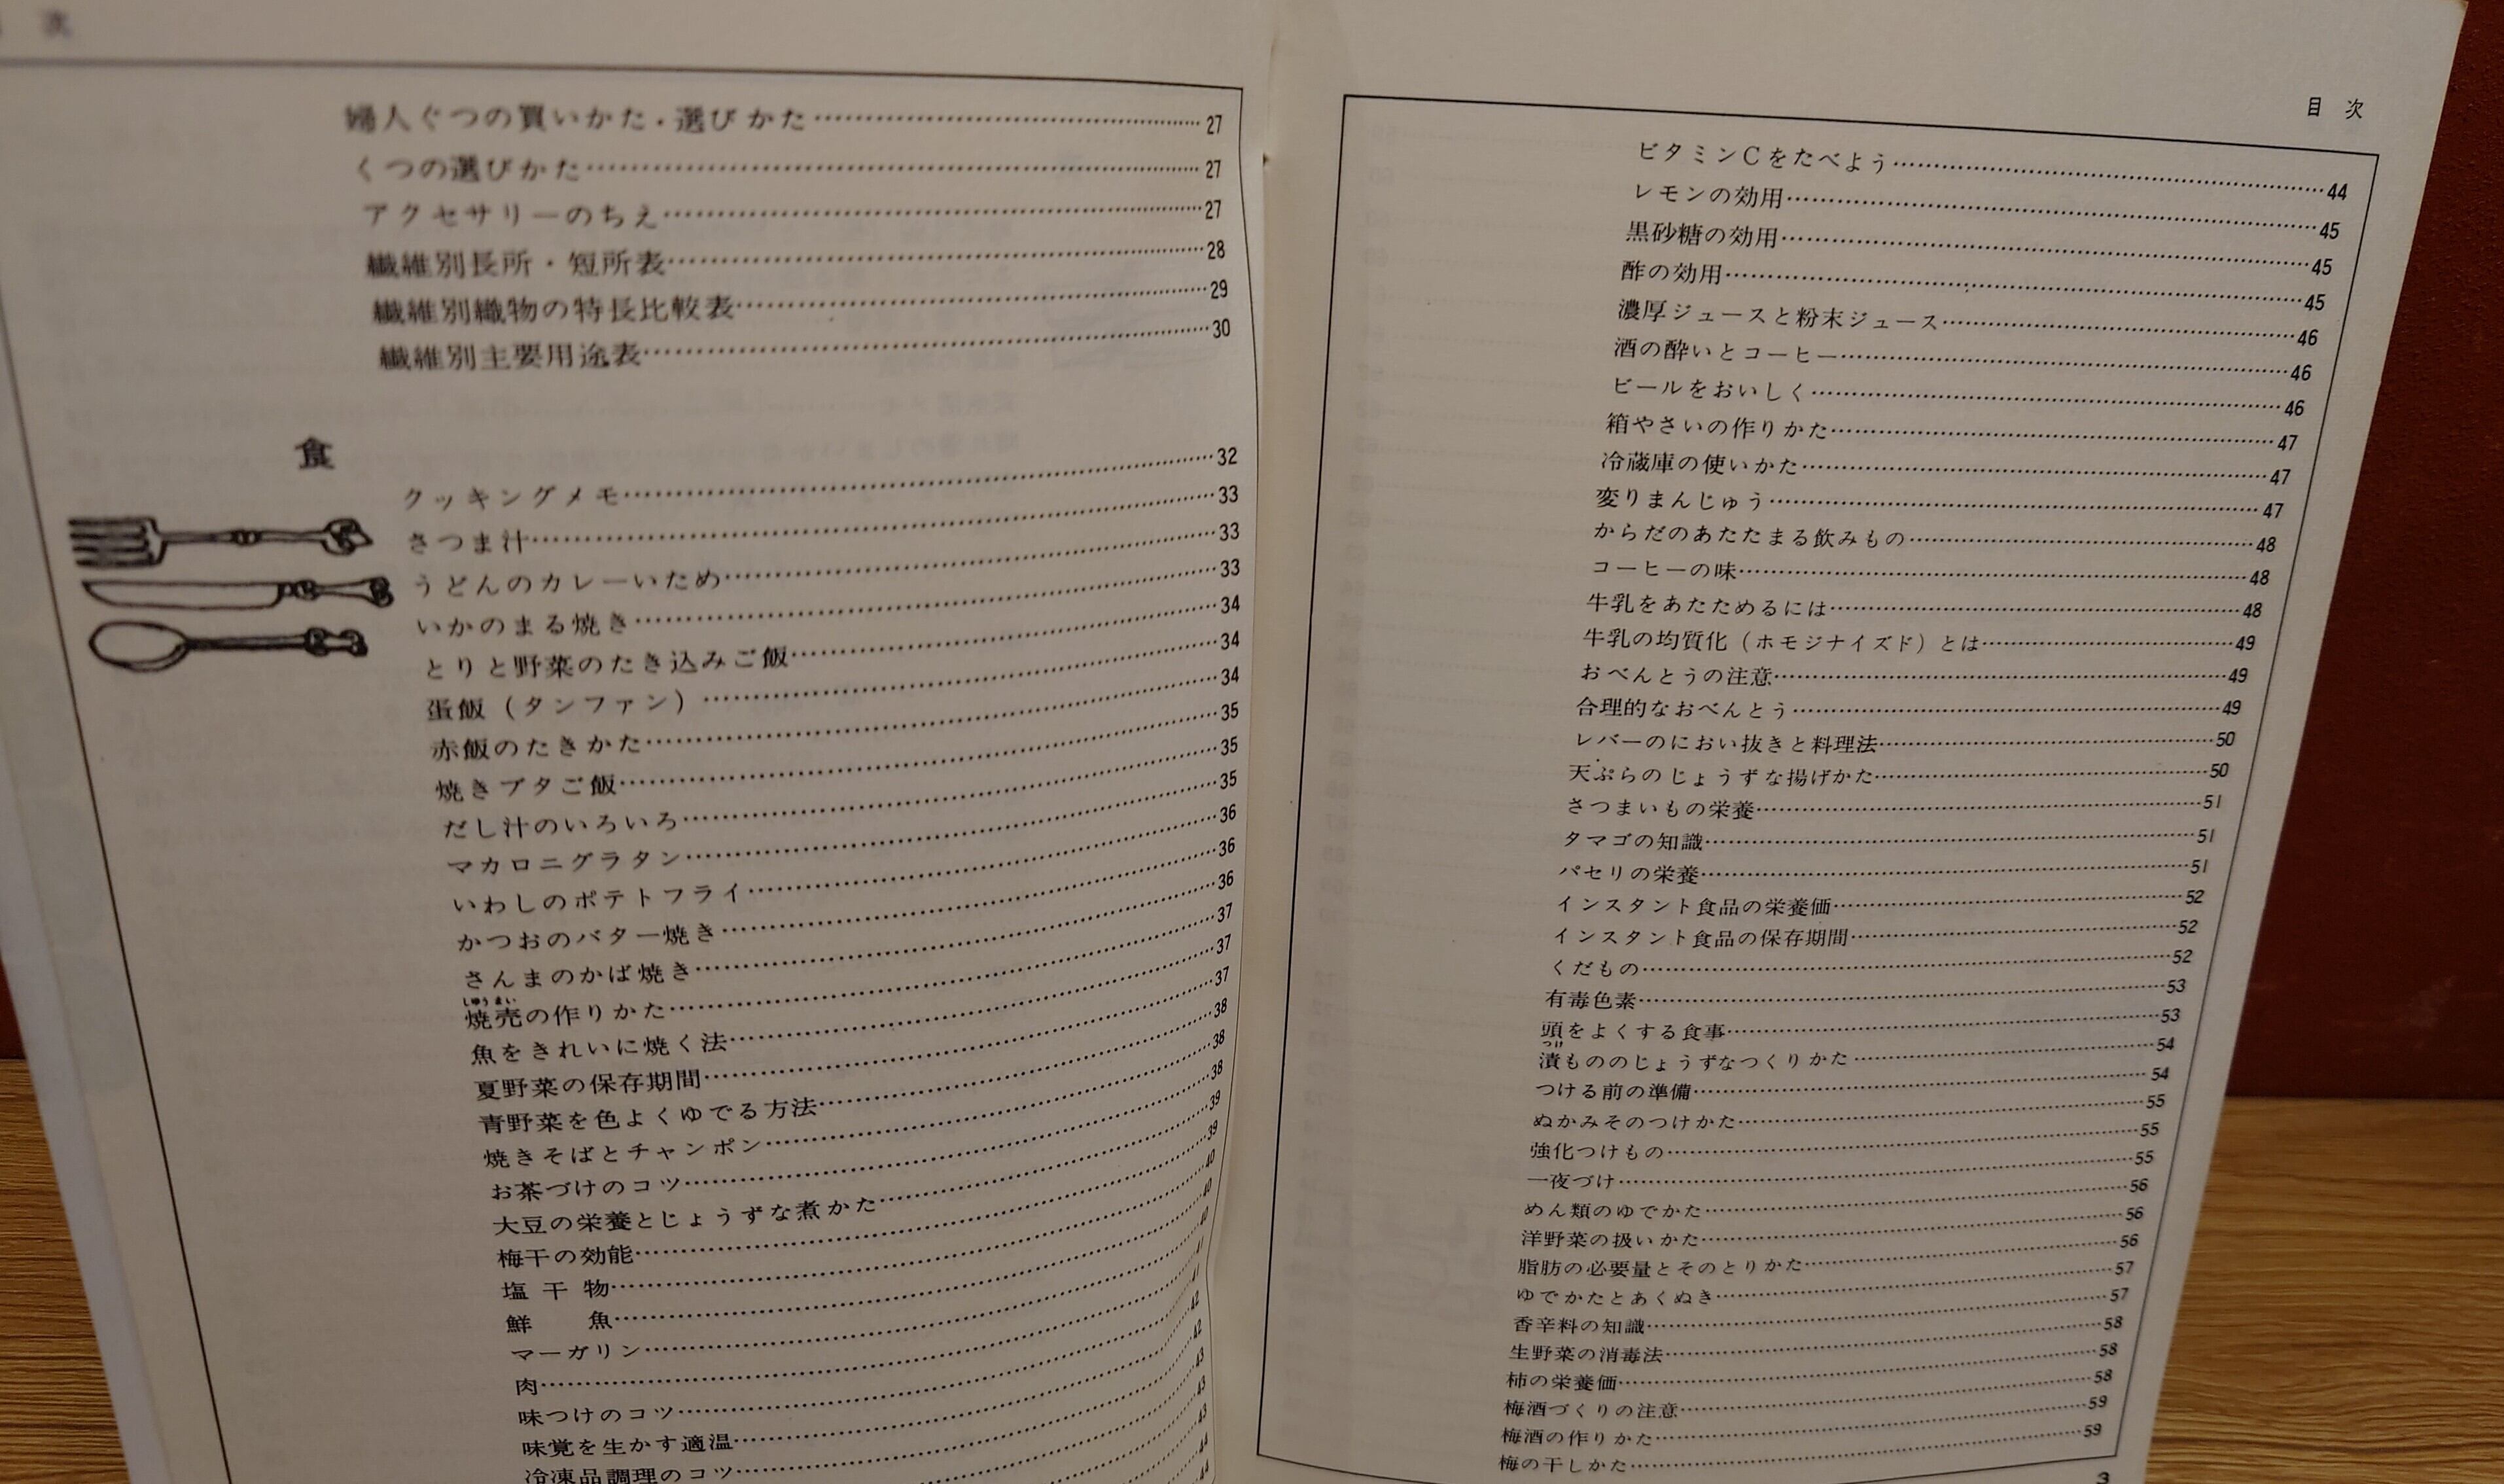 次
婦人ぐつの買いかた・選びかた……………27
くつの選びかた……………27
アクセサリーのちえ……………27
繊維別長所・短所表……………28
繊維別織物の特長比較表……………29
繊維別主要用途表……………30
食
クッキングメモ……………32
さつま汁……………33
うどんのカレーいため……………33
いかのまる焼き……………33
とりと野菜のたき込みご飯……………34
蛋飯（タンファン）……………34
赤飯のたきかた……………34
焼きブタご飯……………35
だし汁のいろいろ……………35
マカロニグラタン……………35
いわしのポテトフライ……………36
かつおのバター焼き……………36
さんまのかば焼き……………36
しゅうまい
焼売の作りかた……………37
魚をきれいに焼く法……………37
夏野菜の保存期間……………37
青野菜を色よくゆでる方法……………38
焼きそばとチャンポン……………38
お茶づけのコツ……………38
大豆の栄養とじょうずな煮かた……………39
梅干の効能……………39
塩干物……………40
鮮　魚……………40
マーガリン……………40
肉……………41
味つけのコツ……………41
味覚を生かす適温……………42
冷凍品調理のコツ……………42
43
43
43
44
44
目次
ビタミンCをたべよう……………44
レモンの効用……………45
黒砂糖の効用……………45
酢の効用……………45
濃厚ジュースと粉末ジュース……………46
酒の酔いとコーヒー……………46
ビールをおいしく……………46
箱やさいの作りかた……………47
冷蔵庫の使いかた……………47
変りまんじゅう……………47
からだのあたたまる飲みもの……………48
コーヒーの味……………48
牛乳をあたためるには……………48
牛乳の均質化（ホモジナイズド）とは……………49
おべんとうの注意……………49
合理的なおべんとう……………49
レバーのにおい抜きと料理法……………50
天ぷらのじょうずな揚げかた……………50
さつまいもの栄養……………51
タマゴの知識……………51
パセリの栄養……………51
インスタント食品の栄養価……………52
インスタント食品の保存期間……………52
くだもの……………52
有毒色素……………53
頭をよくする食事……………53
つけ
漬もののじょうずなつくりかた……………54
つける前の準備……………54
ぬかみそのつけかた……………55
強化つけもの……………55
一夜づけ……………55
めん類のゆでかた……………56
洋野菜の扱いかた……………56
脂肪の必要量とそのとりかた……………56
ゆでかたとあくぬき……………57
香辛料の知識……………57
生野菜の消毒法……………58
柿の栄養価……………58
梅酒づくりの注意……………58
梅酒の作りかた……………59
梅の干しかた……………59
3